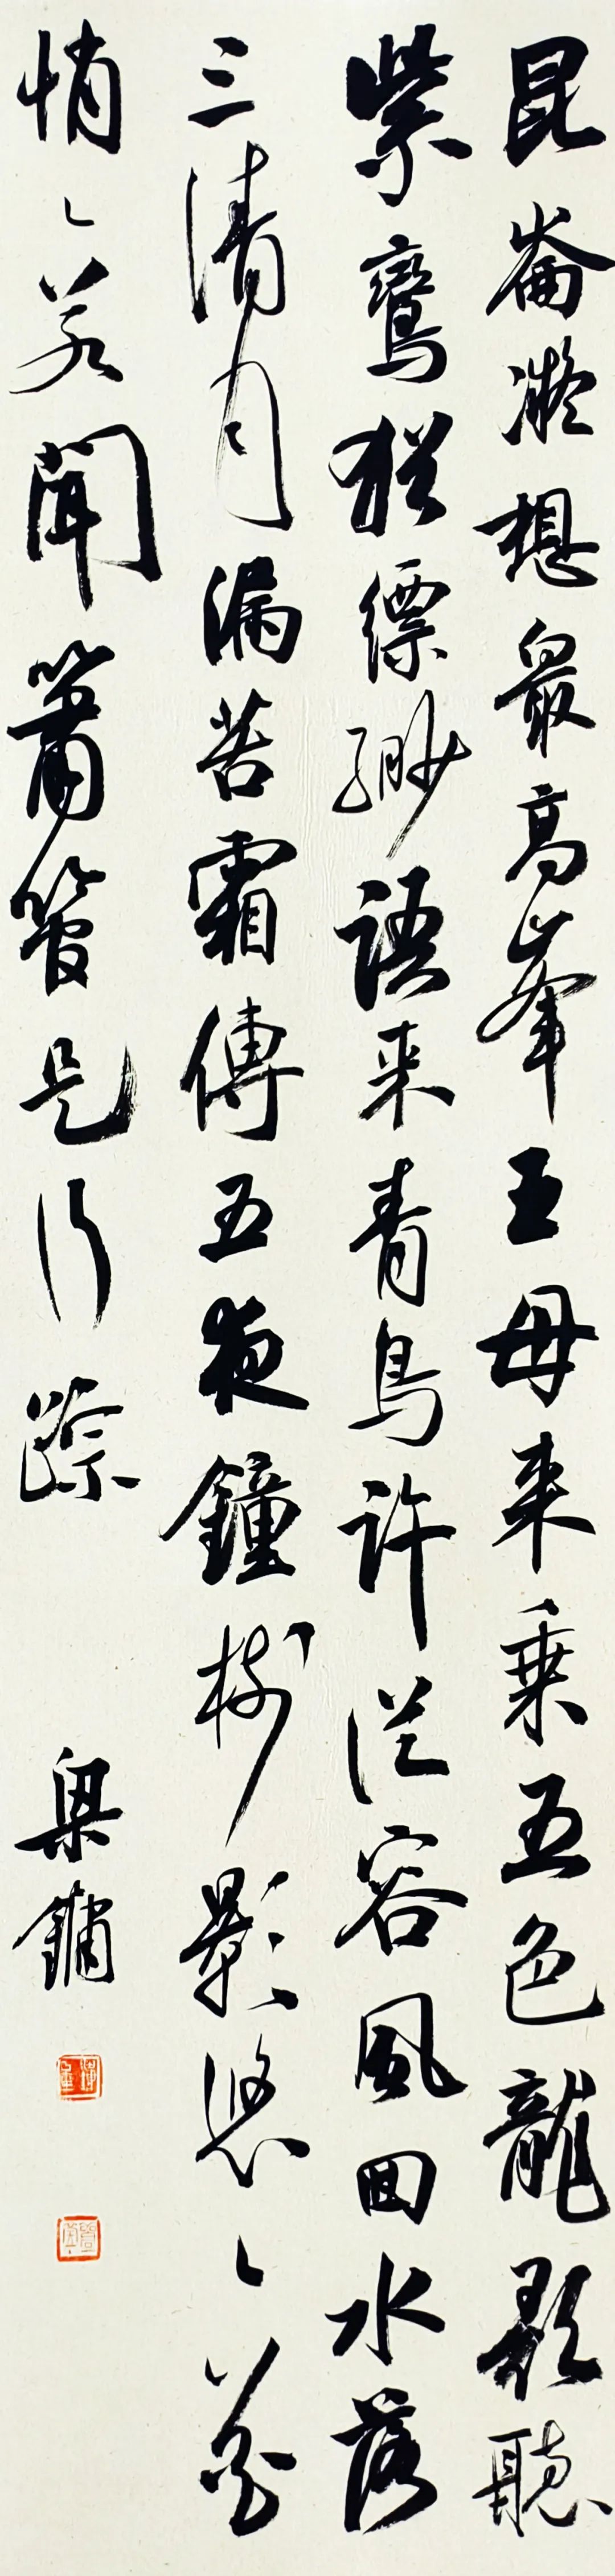 昆崙凝想最高峯王母来乘五色龍歌聽
紫鸞猶縹緲語来青鳥許從容風回水落
三清月漏苦霜傳五夜鐘樹影悠々花
悄々若聞簫管是行踪
梁